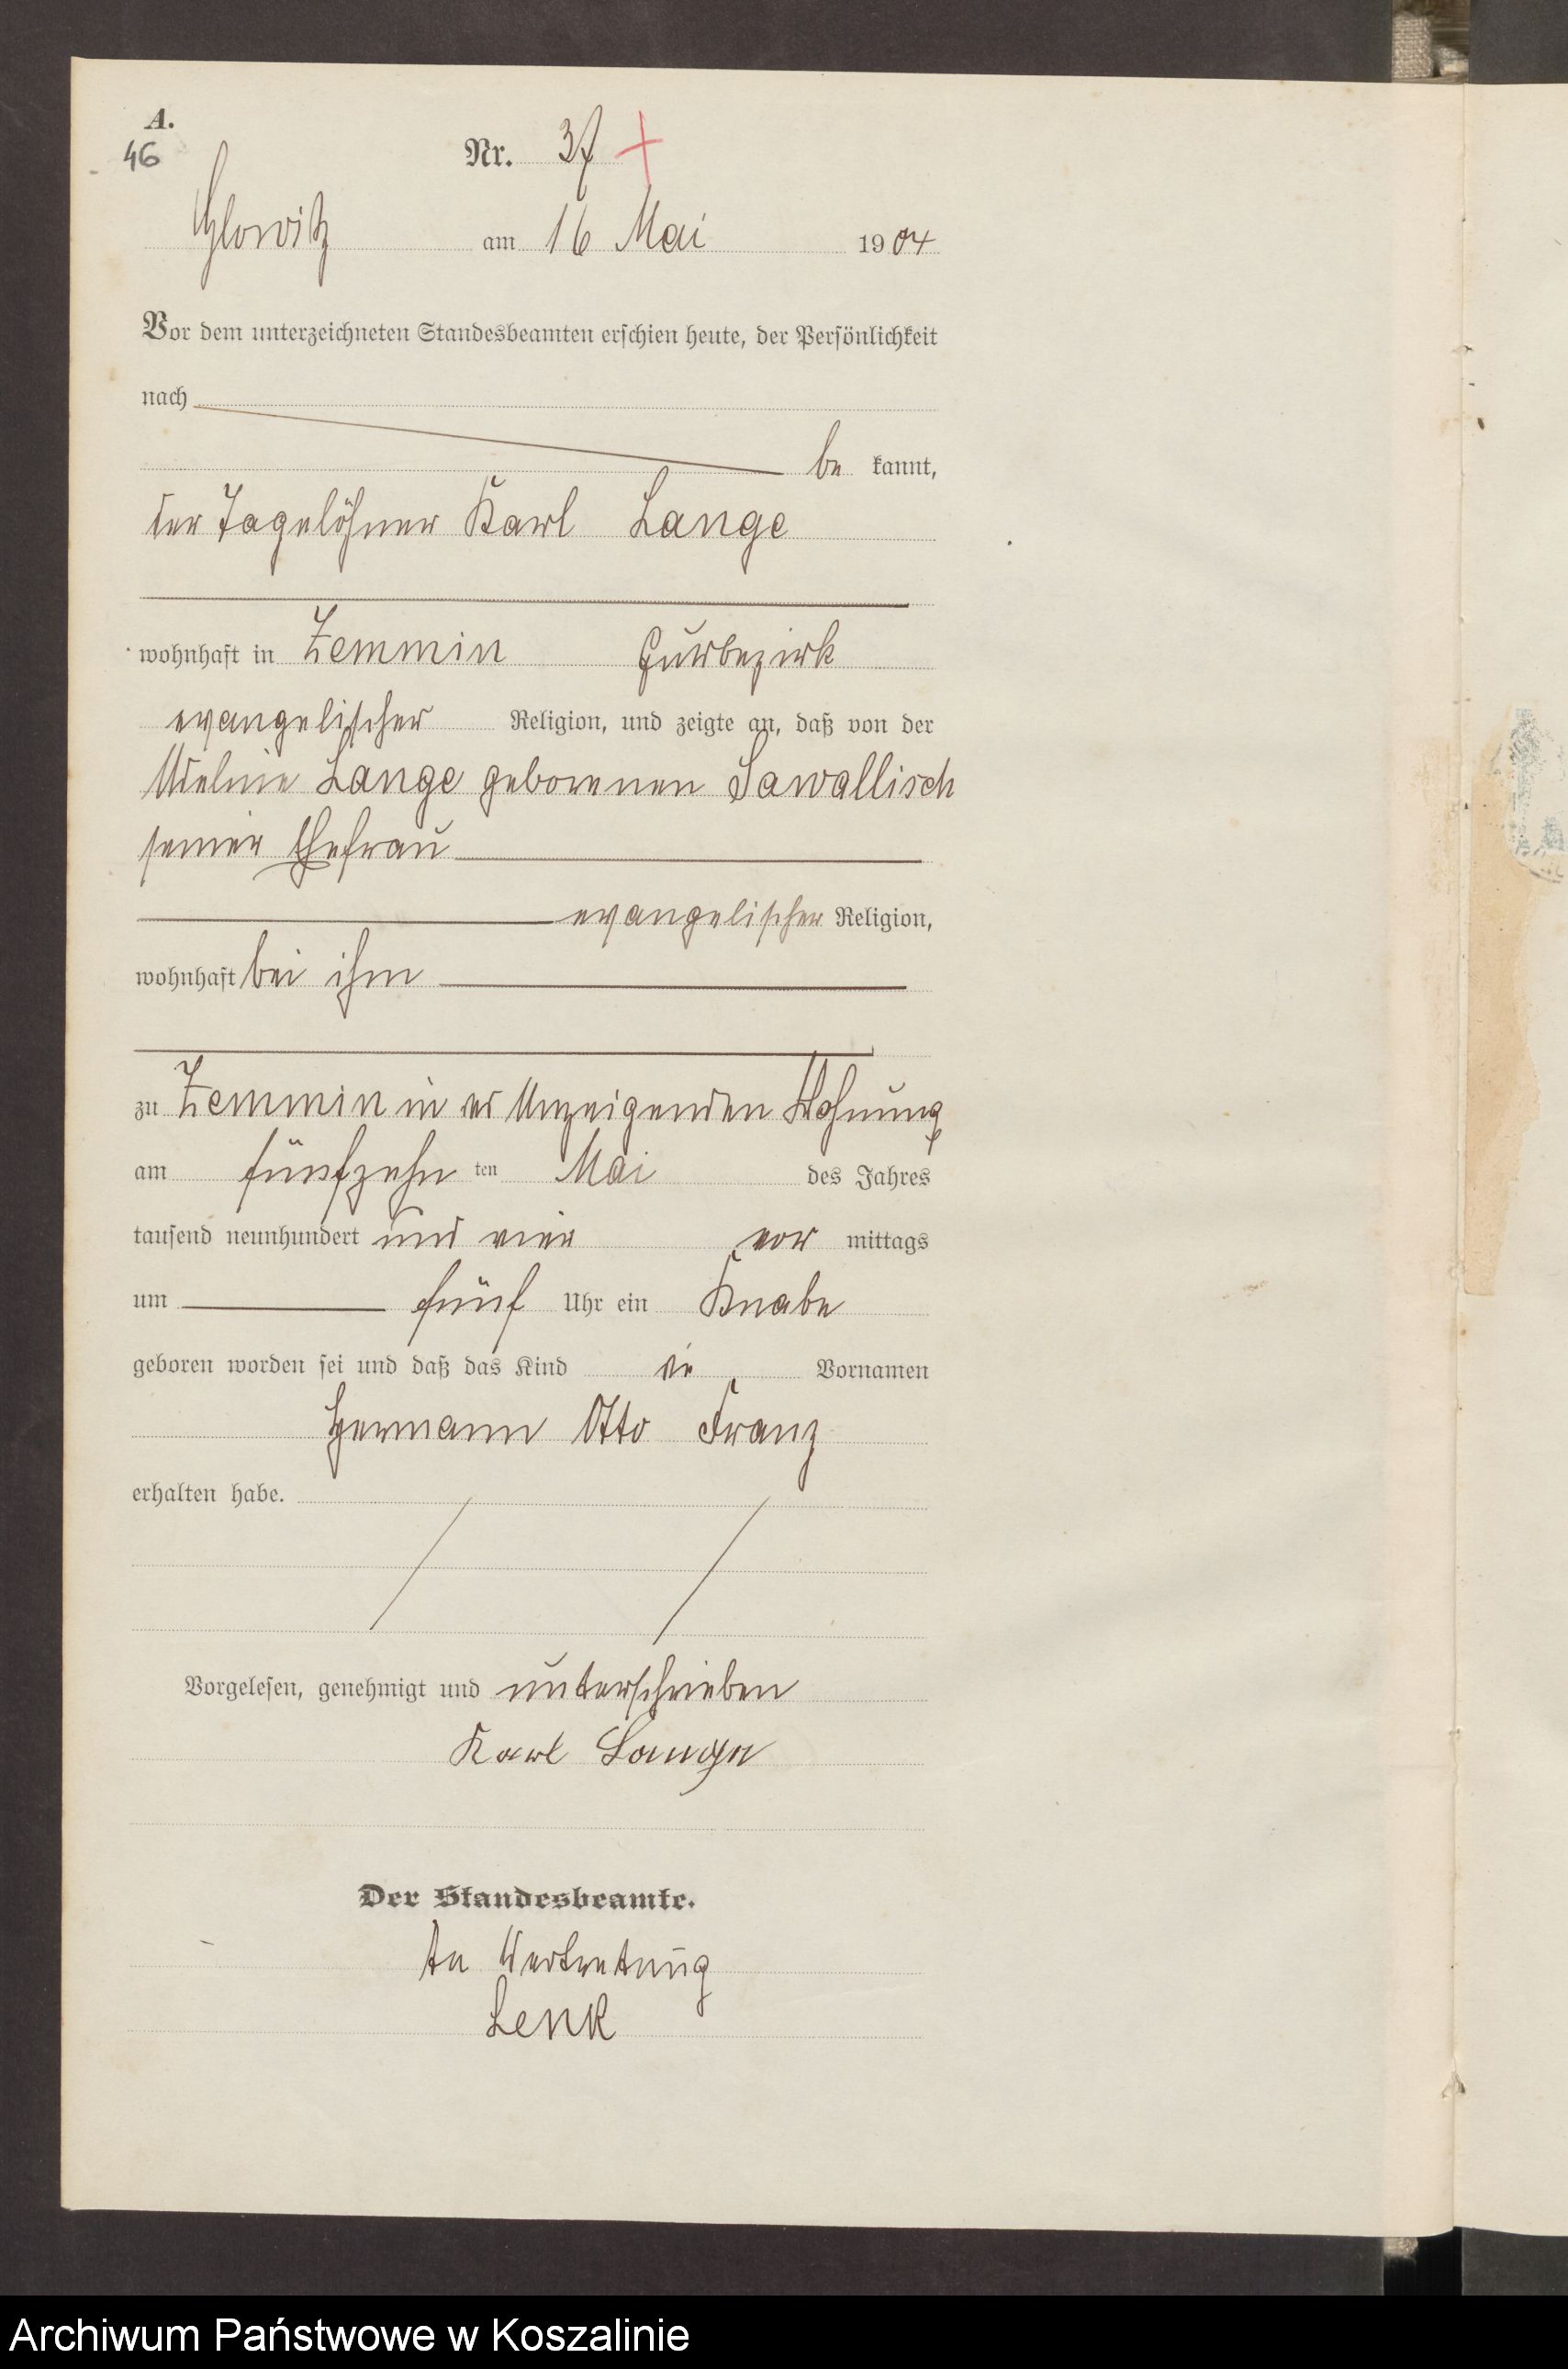 A.
46
Nr. 37
Glowitz am 16 Mai 1904
Vor dem unterzeichneten Standesbeamten erschien heute, der Persönlichkeit
nach
be kannt,
der Tagelöhner Karl Lange
wohnhaft in Zemmin Gutsbezirk
evangelischer Religion, und zeigte an, daß von der
Adeline Lange geborenen Sawallisch
seiner Ehefrau
evangelischer Religion,
wohnhaft bei ihm
zu Zemmin in des Anzeigenden Wohnung
am fünfzehn ten Mai des Jahres
tausend neunhundert und vier vor mittags
um fünf Uhr ein Knabe
geboren worden sei und daß das Kind die Vornamen
Hermann Otto Franz
erhalten habe.
Vorgelesen, genehmigt und unterschrieben
Karl Lange
Der Standesbeamte.
In Vertretung
Lenk
Archiwum Państwowe w Koszalinie